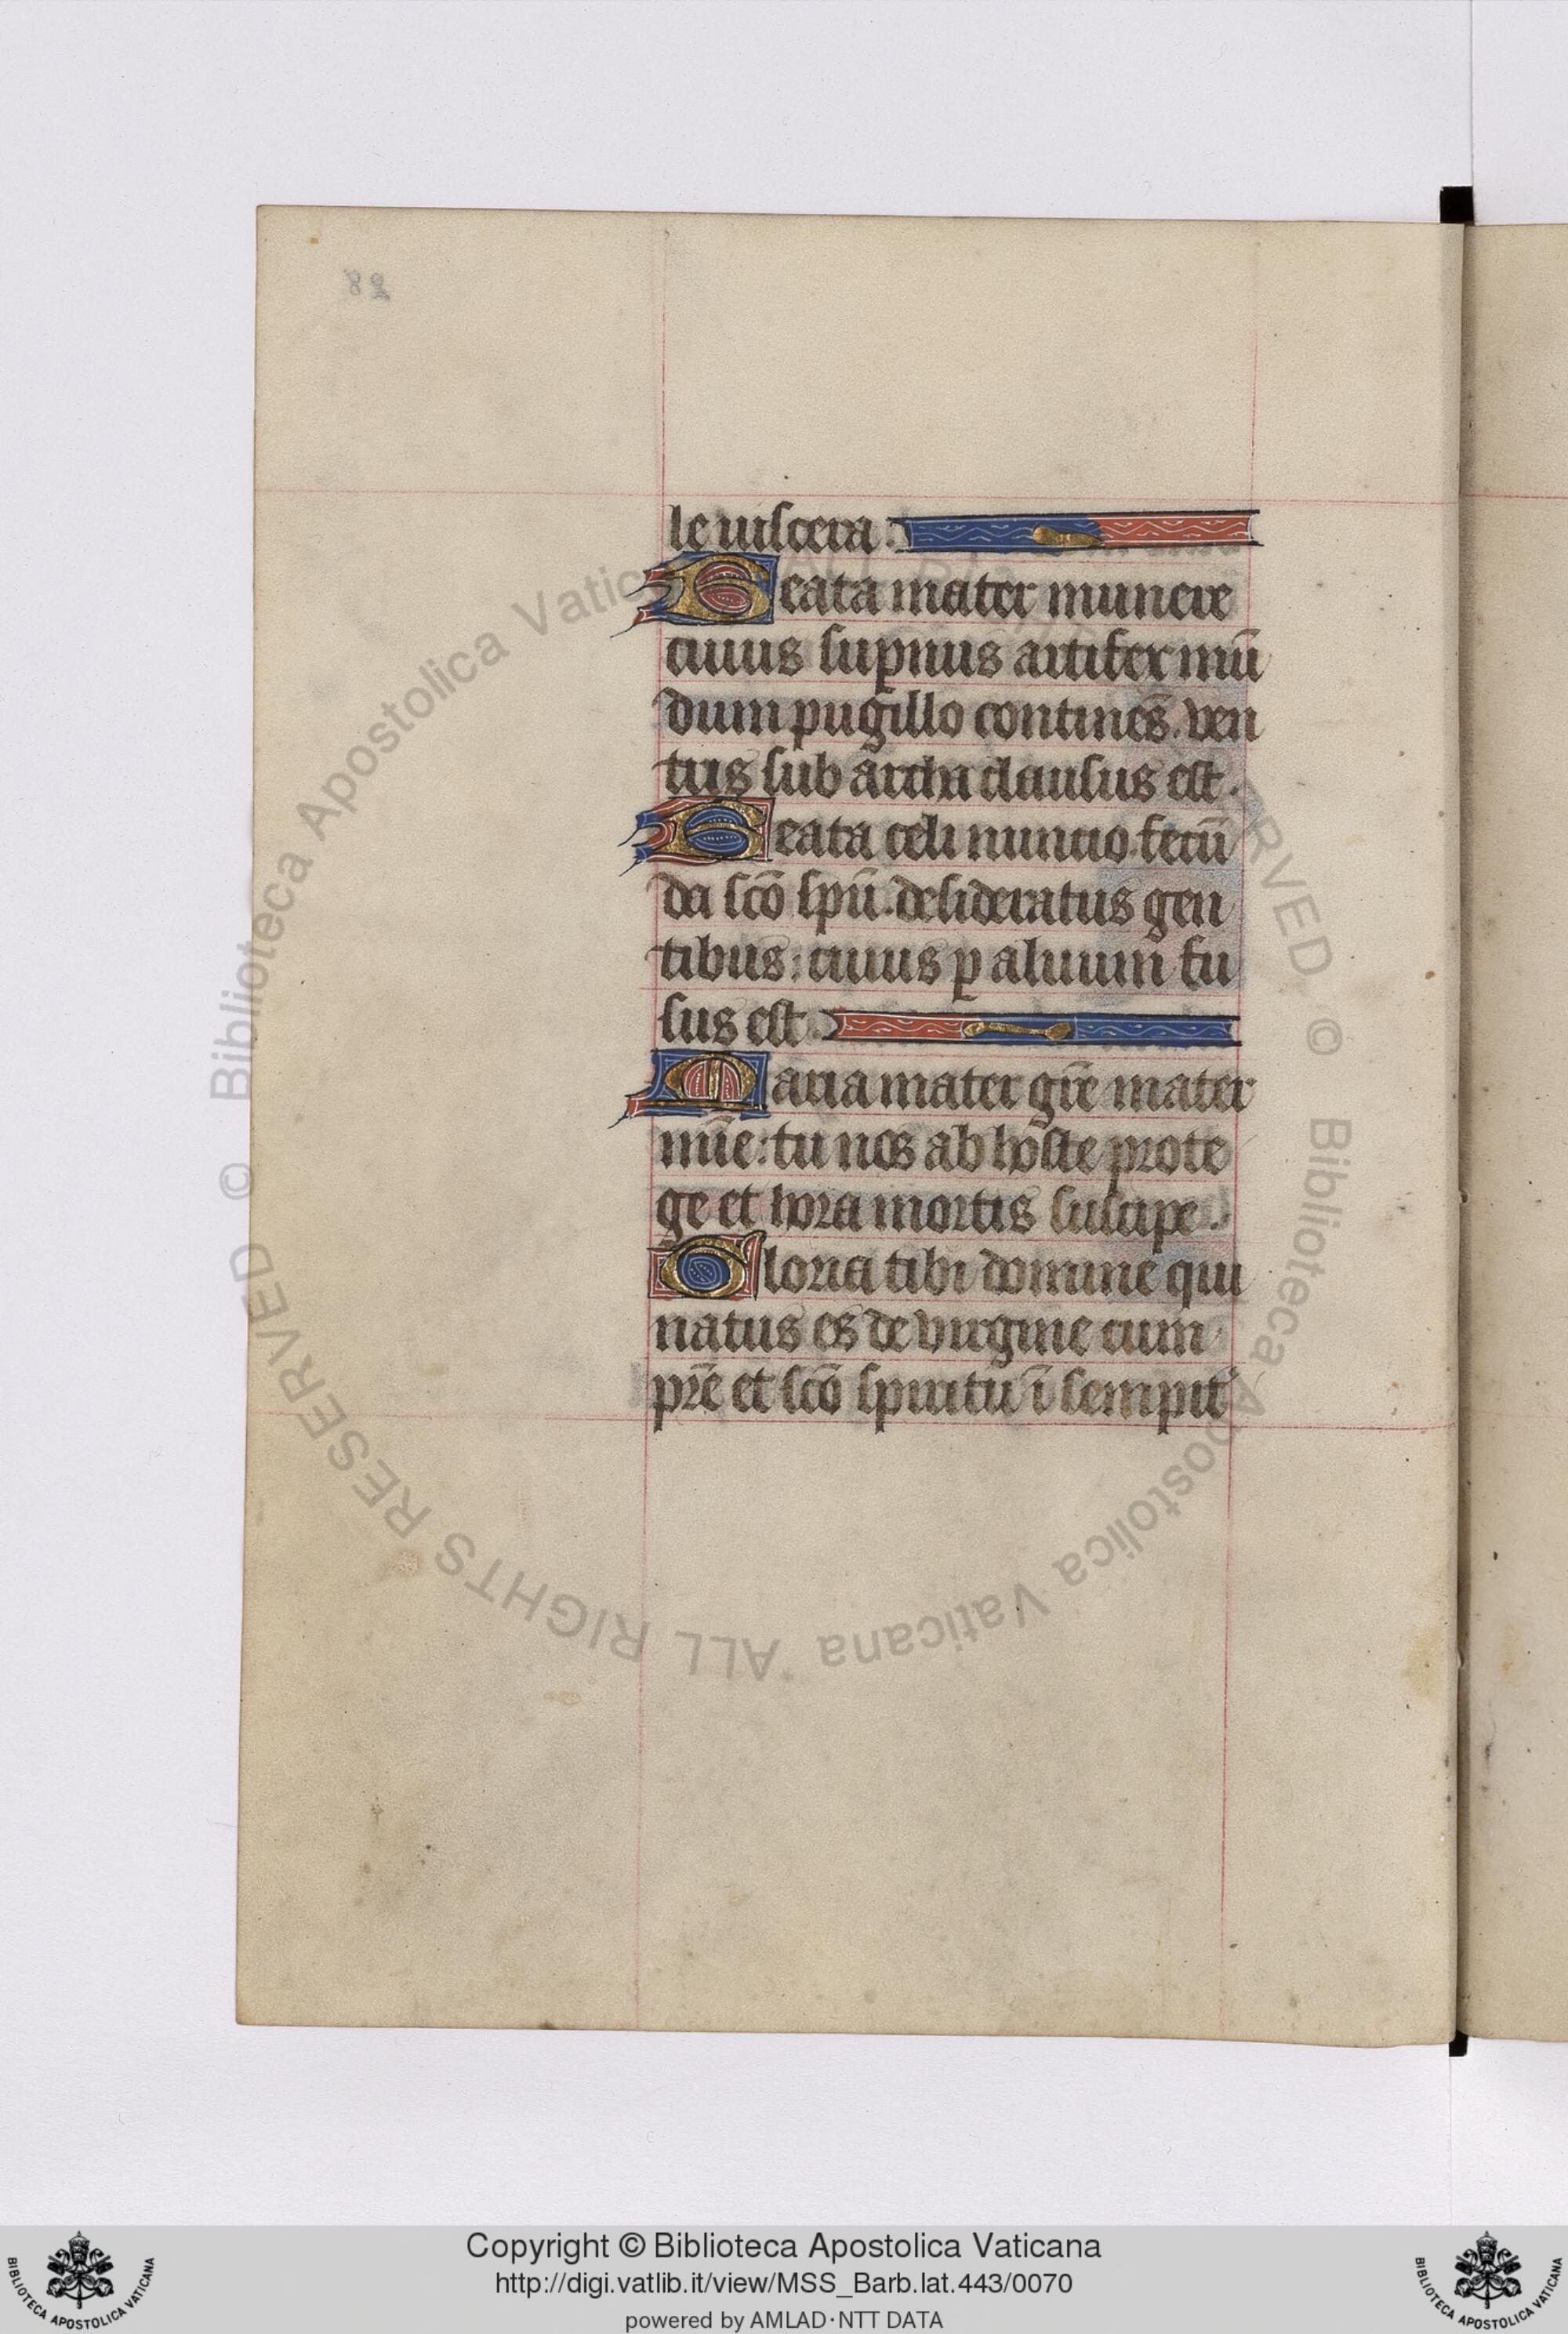 88
le uiscera.
Beata mater munere
cuius supnus artifex mū
dum pugillo continēs. ven
tris sub archa clausus est.
Beata celi nuncio. fecū
da scō spū. desideratus gen
tibus: cuius p aluum fu
sus est.
Maria mater gr̄e mater
mīe: tu nos ab hoste prote
ge et hora mortis suscipe.
Gloria tibi domine qui
natus es de virgine cum
pr̄e et scō spiritu ī sempit
© Biblioteca Apostolica Vaticana ALL RIGHTS RESERVED © Biblioteca Apostolica Vaticana ALL RIGHTS RESERVED
Copyright © Biblioteca Apostolica Vaticana
http://digi.vatlib.it/view/MSS_Barb.lat.443/0070
powered by AMLAD·NTT DATA
BIBLIOTECA APOSTOLICA VATICANA
BIBLIOTECA APOSTOLICA VATICANA